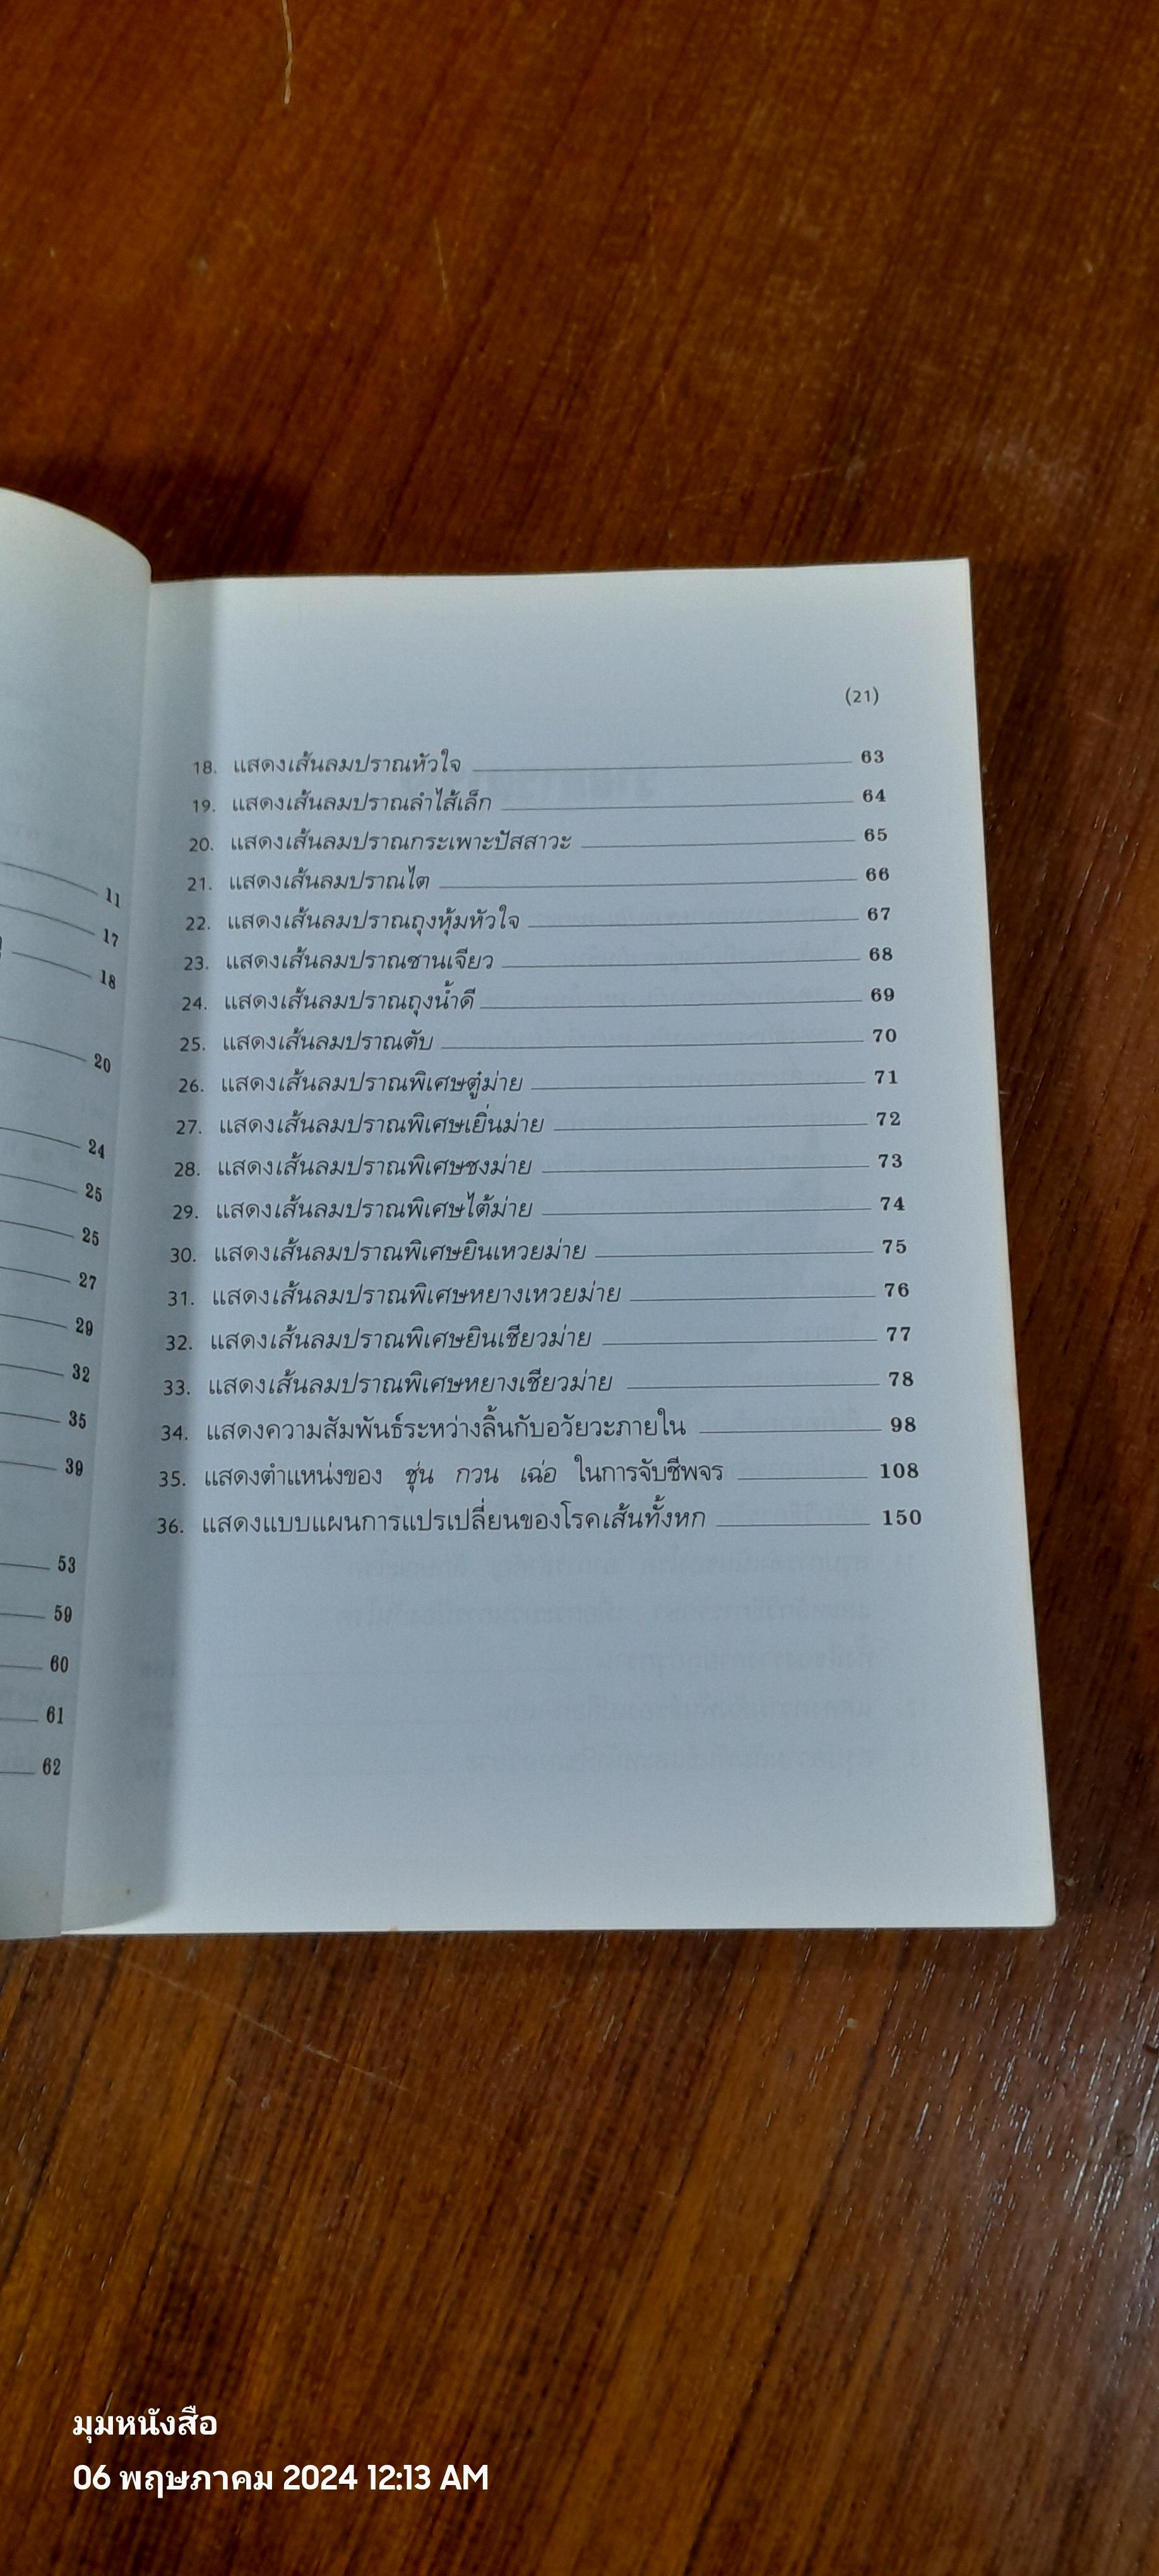 11
17
18
20
24
25
25
27
29
32
35
39
53
59
60
61
62
(21)
18. แสดงเส้นลมปราณหัวใจ 63
19. แสดงเส้นลมปราณลำไส้เล็ก 64
20. แสดงเส้นลมปราณกระเพาะปัสสาวะ 65
21. แสดงเส้นลมปราณไต 66
22. แสดงเส้นลมปราณถุงหุ้มหัวใจ 67
23. แสดงเส้นลมปราณซานเจียว 68
24. แสดงเส้นลมปราณถุงน้ำดี 69
25. แสดงเส้นลมปราณตับ 70
26. แสดงเส้นลมปราณพิเศษตู๋ม่าย 71
27. แสดงเส้นลมปราณพิเศษเยิ่นม่าย 72
28. แสดงเส้นลมปราณพิเศษชงม่าย 73
29. แสดงเส้นลมปราณพิเศษไต้ม่าย 74
30. แสดงเส้นลมปราณพิเศษยินเหวยม่าย 75
31. แสดงเส้นลมปราณพิเศษหยางเหวยม่าย 76
32. แสดงเส้นลมปราณพิเศษยินเชียวม่าย 77
33. แสดงเส้นลมปราณพิเศษหยางเชียวม่าย 78
34. แสดงความสัมพันธ์ระหว่างลิ้นกับอวัยวะภายใน 98
35. แสดงตำแหน่งของ ชุ่น กวน เฉ่อ ในการจับชีพจร 108
36. แสดงแบบแผนการแปรเปลี่ยนของโรคเส้นทั้งหก 150
มุมหนังสือ
06 พฤษภาคม 2024 12:13 AM